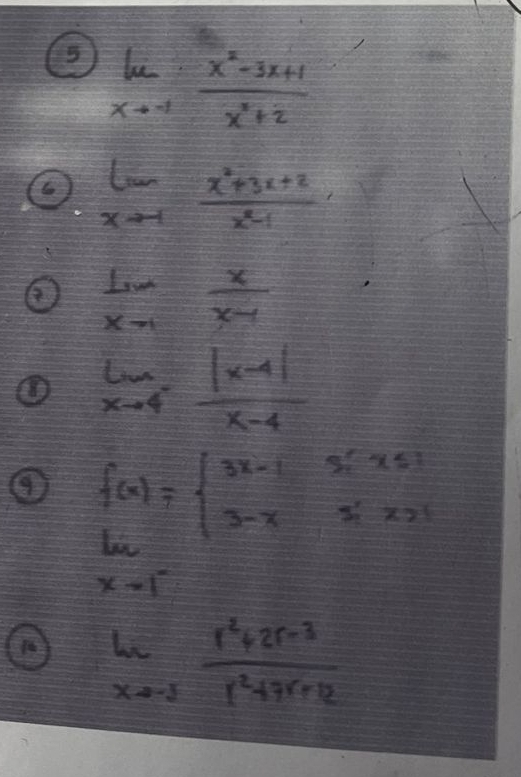 ⑤ lim x²-3x+1
x→-1 x²+2
⑥ Lim x²+3x+2
x→-1 x²-1
⑦ Lim x
x→1 x-1
⑧ Lim |x-4|
x→4⁻ x-4
⑨ f(x) = { 3x-1 si x≤1
3-x si x>1
lim
x→1⁻
⑩ lim r²+2r-3
x→-3 r²+7r+12